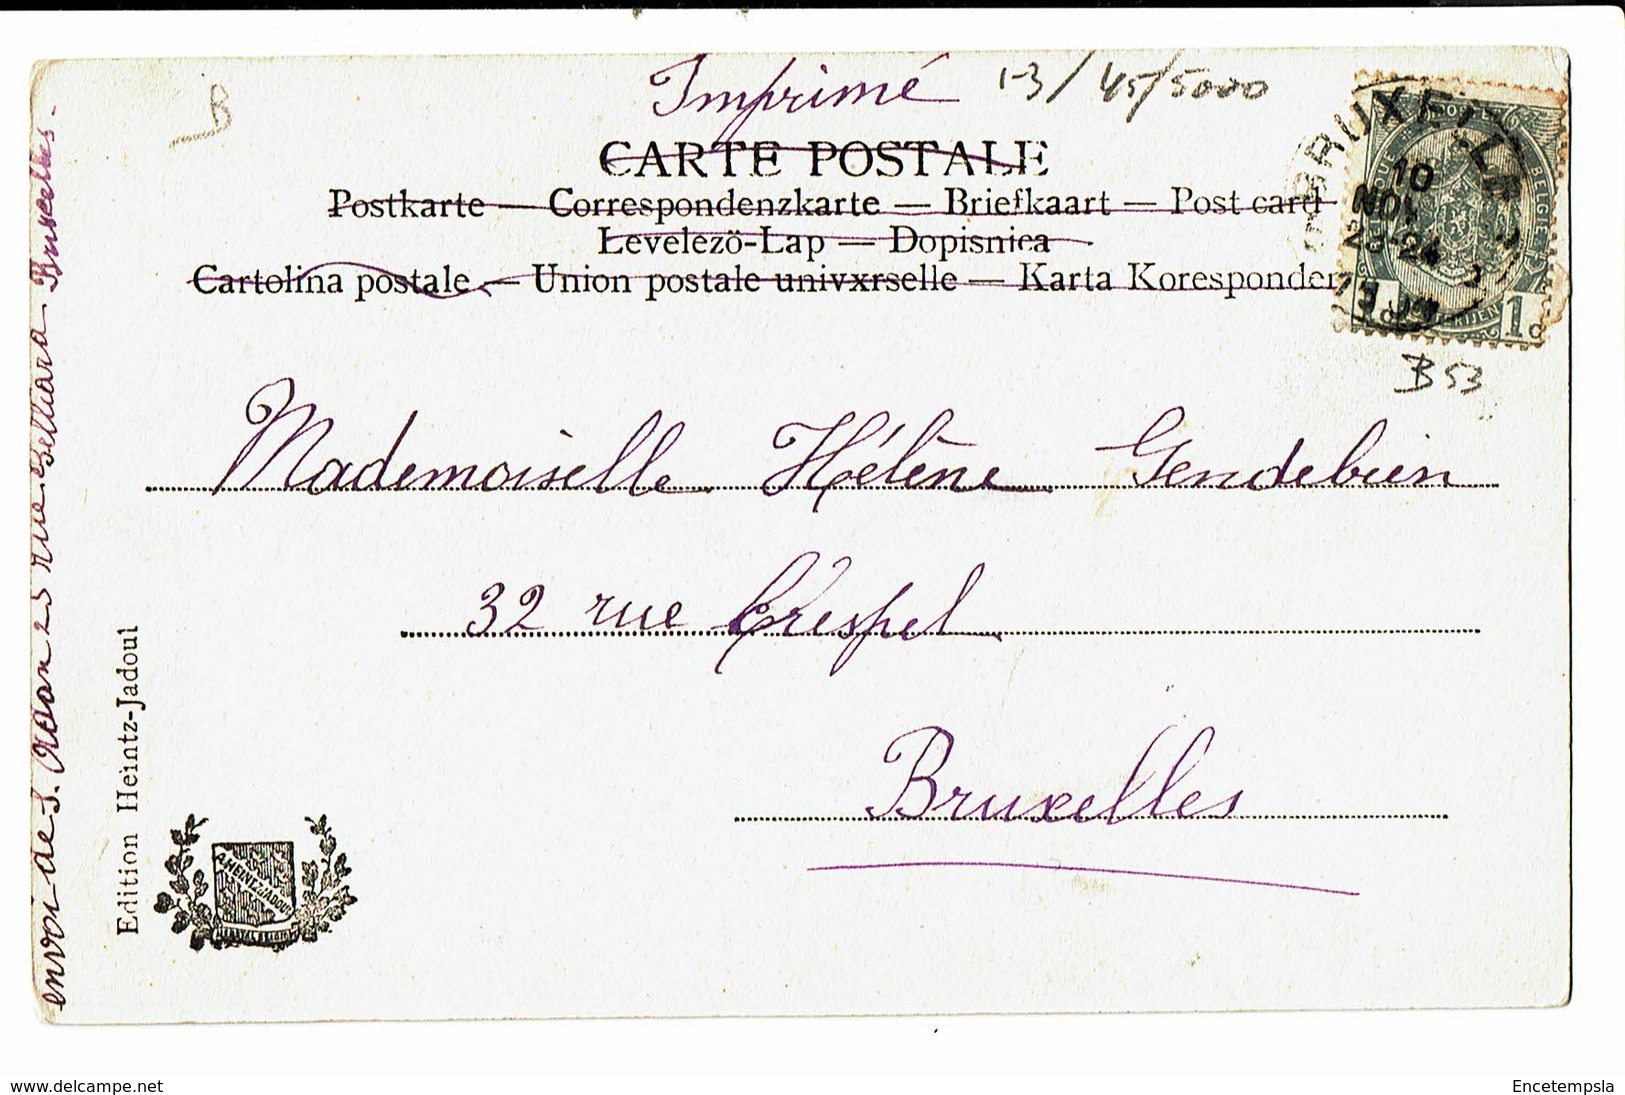 Imprimé 1-3/45/5000
B
CARTE POSTALE
Postkarte — Correspondenzkarte — Briefkaart — Post card
Levelezö-Lap — Dopisnica
Cartolina postale — Union postale univxrselle — Karta Koresponden
BRUXELLE
10
NOV
23-24
BELGE
1c
B 53
Mademoiselle Hélène Gendebien
32 rue Crespel
Bruxelles
envoi de S. 25 rue Belliard Bruxelles.
Edition Heintz-Jadoul
A. HEINTZ-JADOUL
www.delcampe.net
Encetempsla